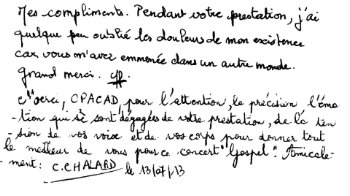 Mes compliments. Pendant votre prestation, j'ai
quelque peu oublié les douleurs de mon existence
car vous m'avez emmenée dans un autre monde.
Grand merci.
Merci, OPACAD pour l'attention, la précision l'émo-
tion qui se sont dégagés de votre prestation, de la ten-
sion de vos voix et de vos corps pour donner tout
le meilleur de vous pour ce concert "Gospel". Amicale-
ment: C. CHALARD le 13/07/13